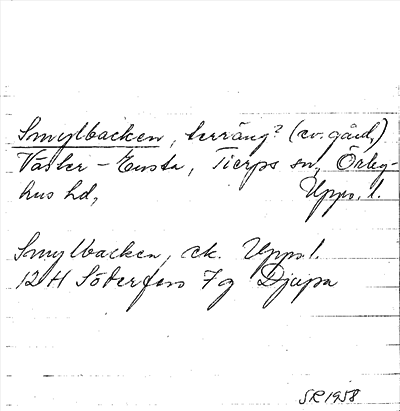 Smylbacken, terräng? (ev. gård,)
Väster-Ensta, Tierps sn, Örby-
hus hd, Upps. l.
Smylbacken, ek. Upps. l.
12 H Söderfors 7g Djupa
SR 1958